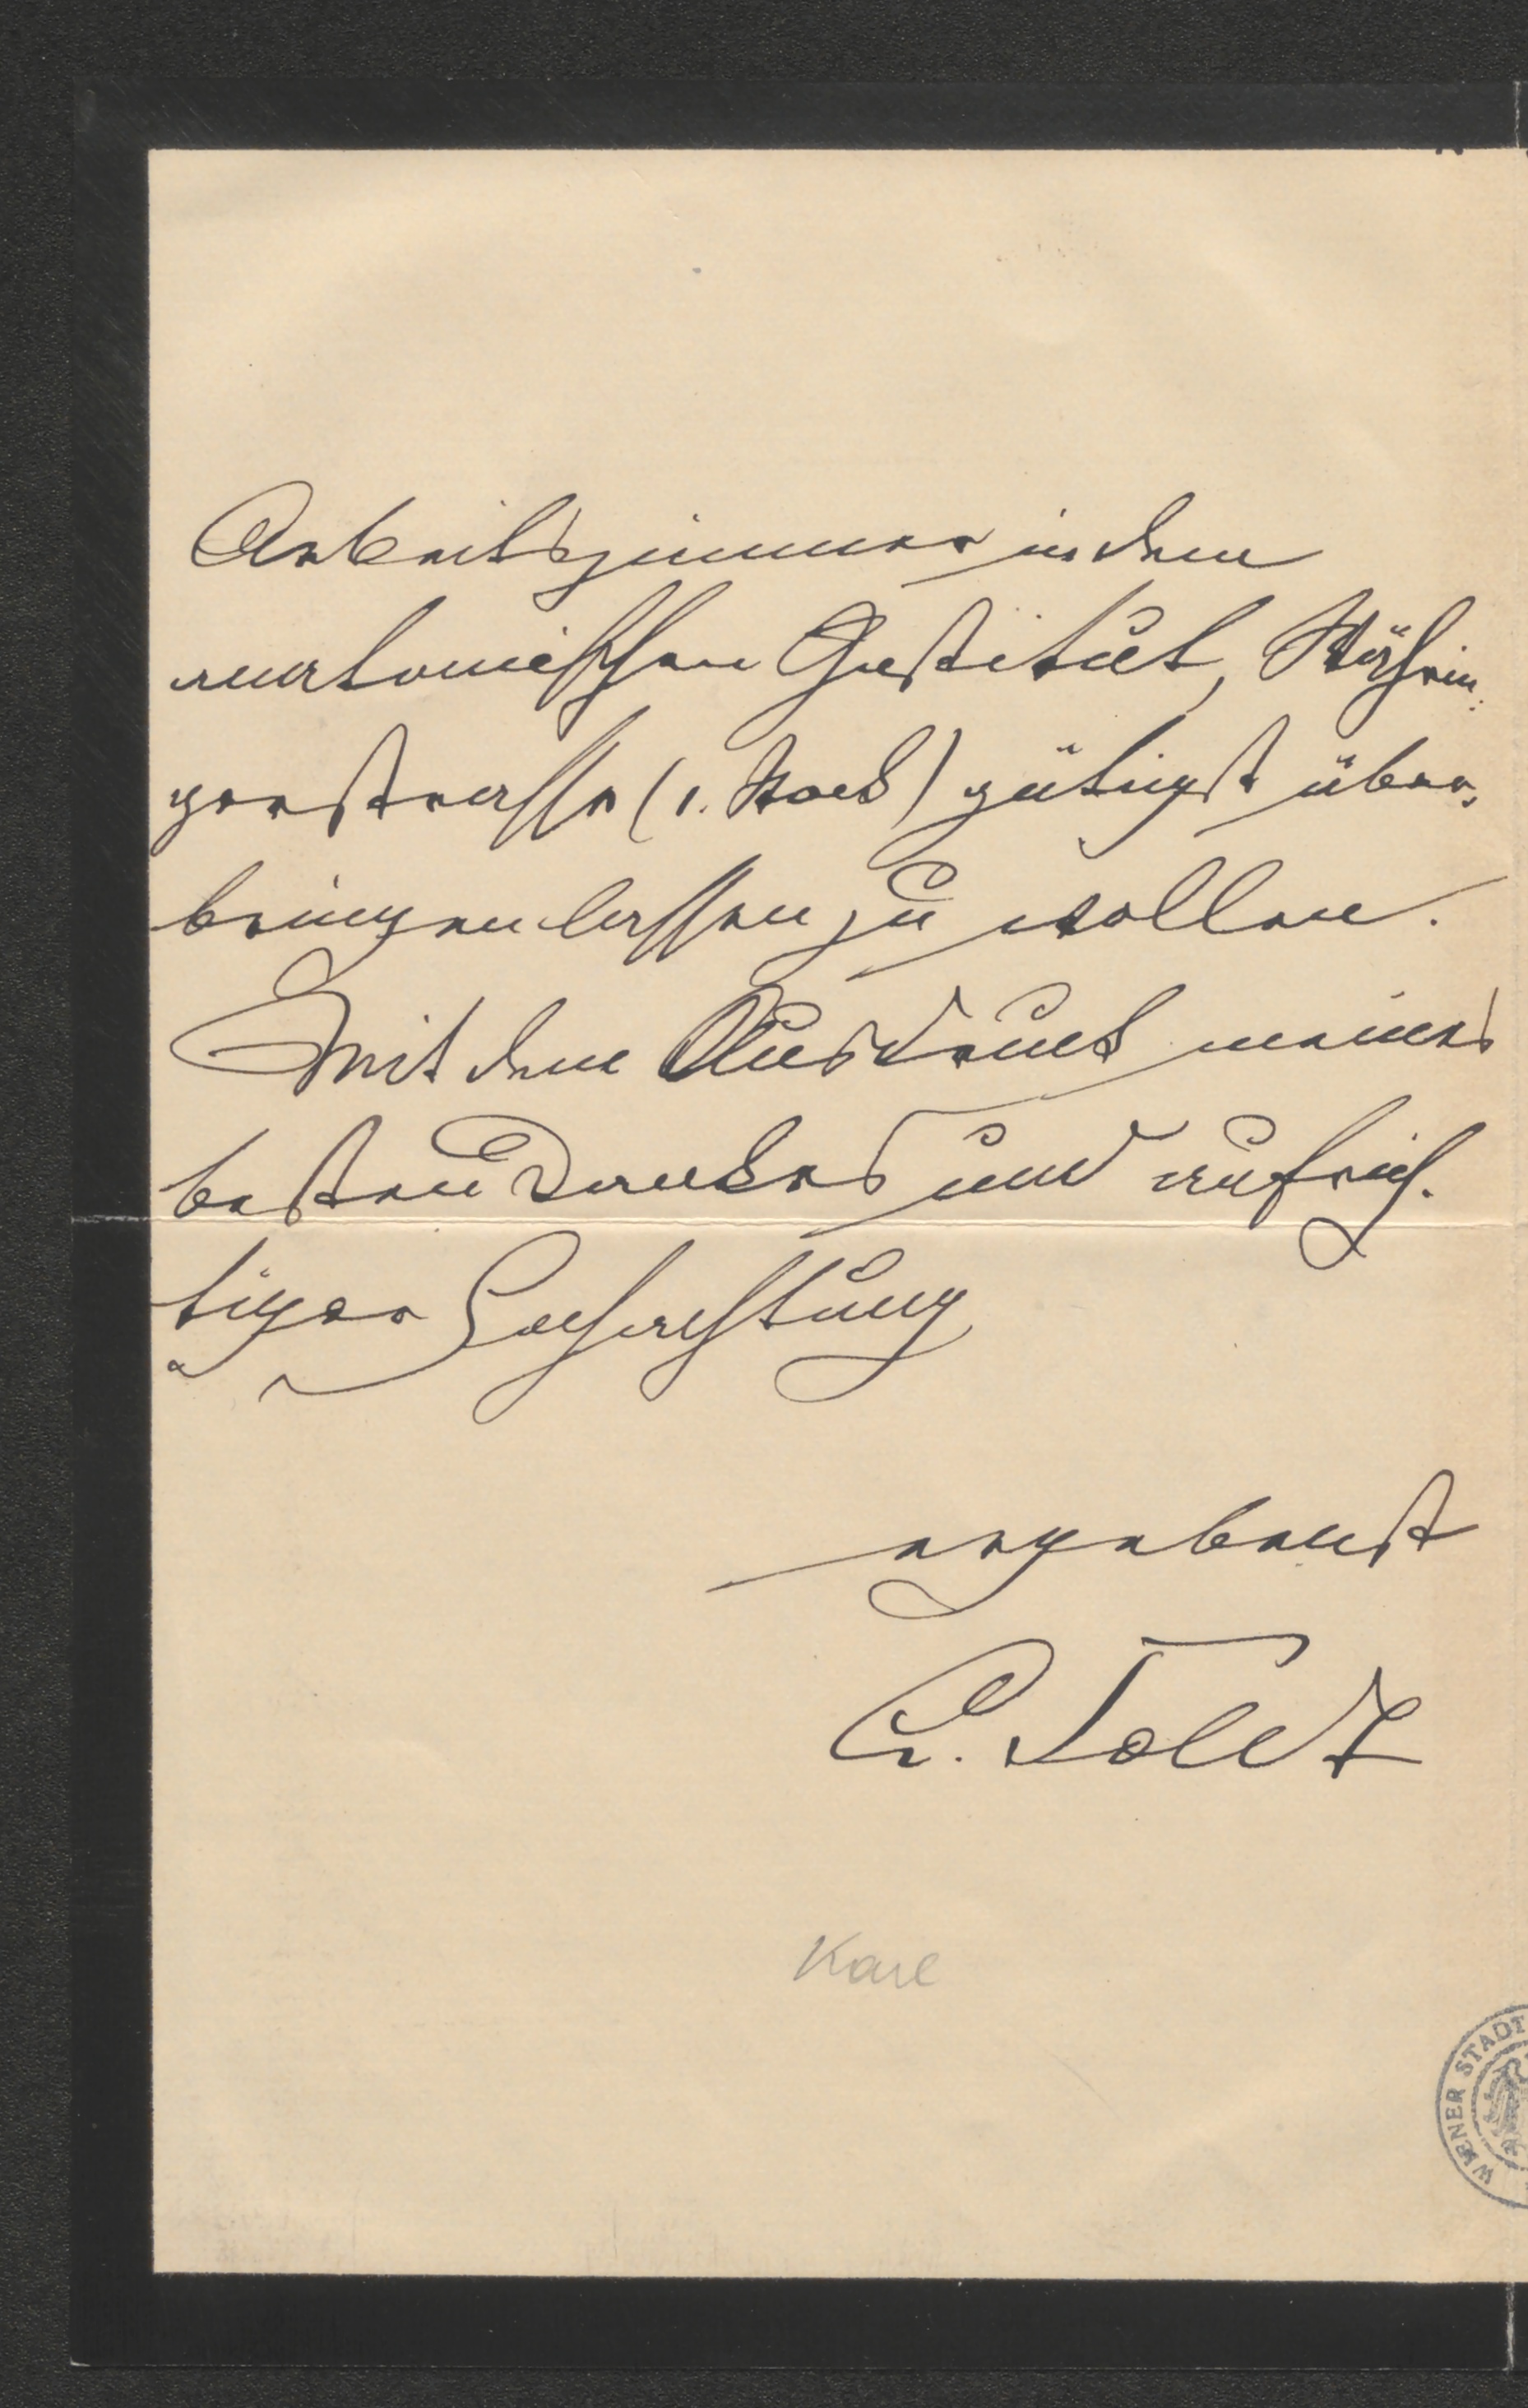 Arbeitszimmer in dem
anatomischen Institut, Währin-
gerstrasse (1. Stock) gütigst über-
bringen lassen zu wollen.
Mit dem Ausdruck meines
besten Dankes und aufrich-
tiger Hochachtung
ergebenst
C. Toldt
Karl
WIENER STADT